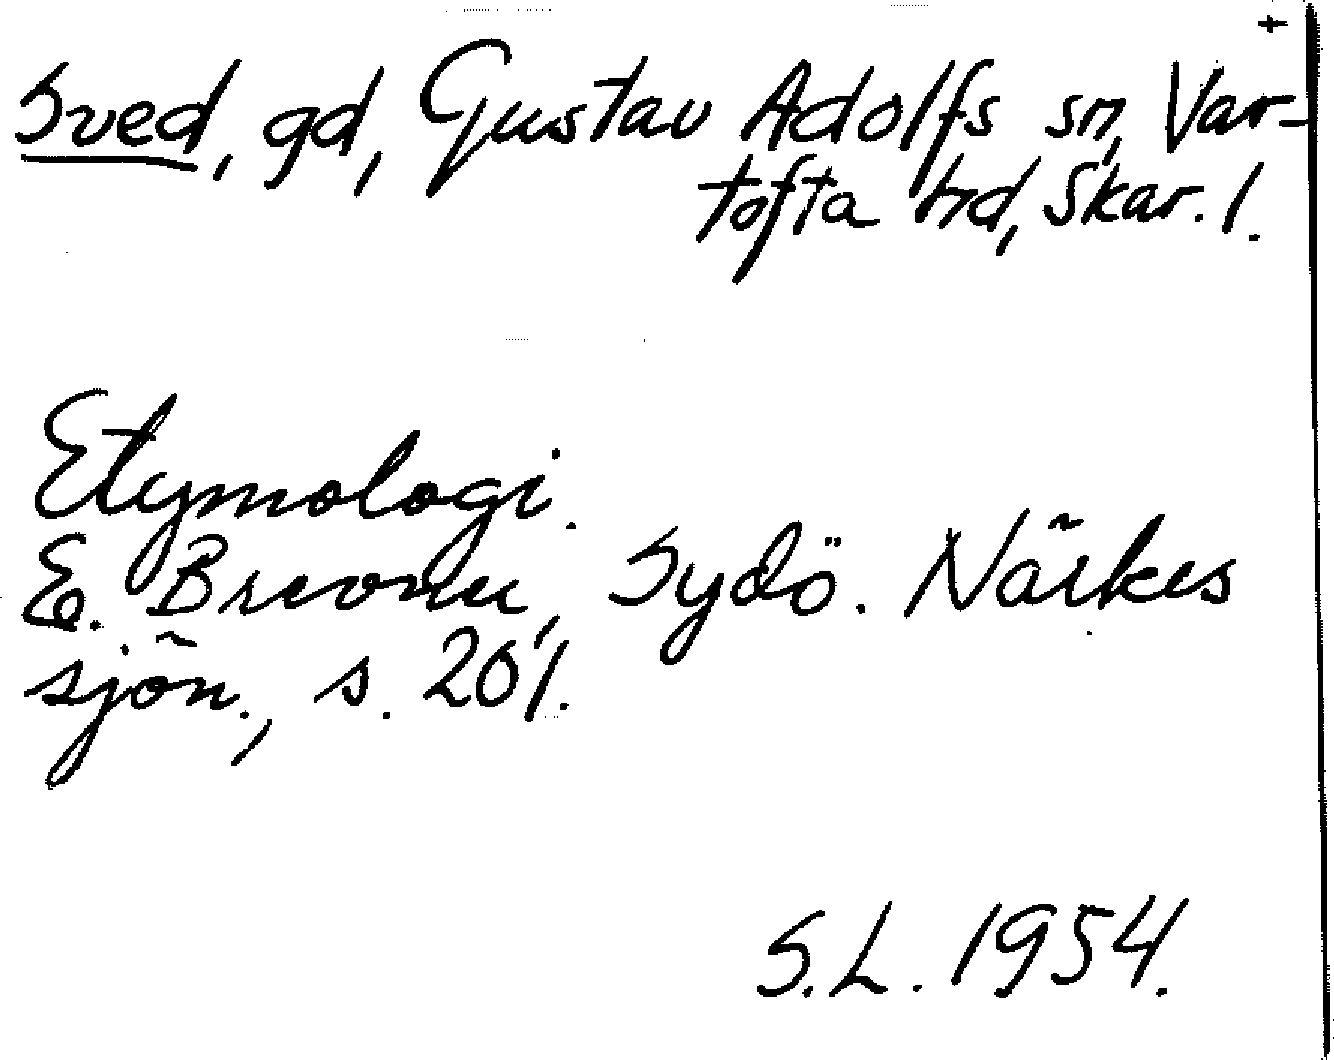 +
Sved, gd, Gustav Adolfs sn, Var-
tofta hd, Skar. l.
Etymologi.
E. Brevner, Sydö. Närkes
sjön., s. 201.
S.L. 1954.